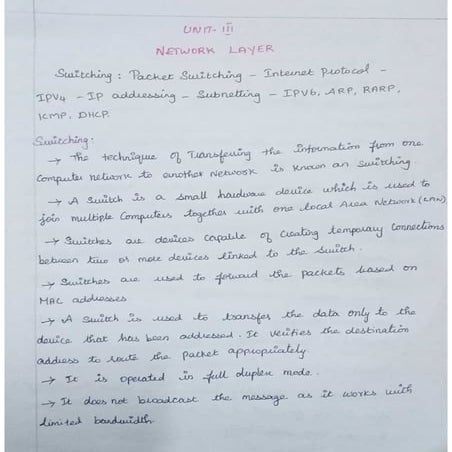 UNIT-III
NETWORK LAYER
Switching : Packet Switching - Internet Protocol -
IPV4 - IP addressing - Subnetting - IPV6, ARP, RARP,
ICMP, DHCP.
Switching:
→ The technique of Transferring the information from one
Computer network to another network is known as Switching
→ A Switch is a small hardware device which is used to
join multiple Computers together with one local Area Network (LAN).
→ Switches are devices capable of creating temporary Connections
between two or more devices linked to the Switch.
→ Switches are used to forward the packets based on
MAC addresses
→ A Switch is used to transfer the data only to the
device that has been addressed. It verifies the destination
address to route the packet appropriately.
→ It is operated in full duplex mode.
→ It does not broadcast the message as it works with
limited bandwidth.